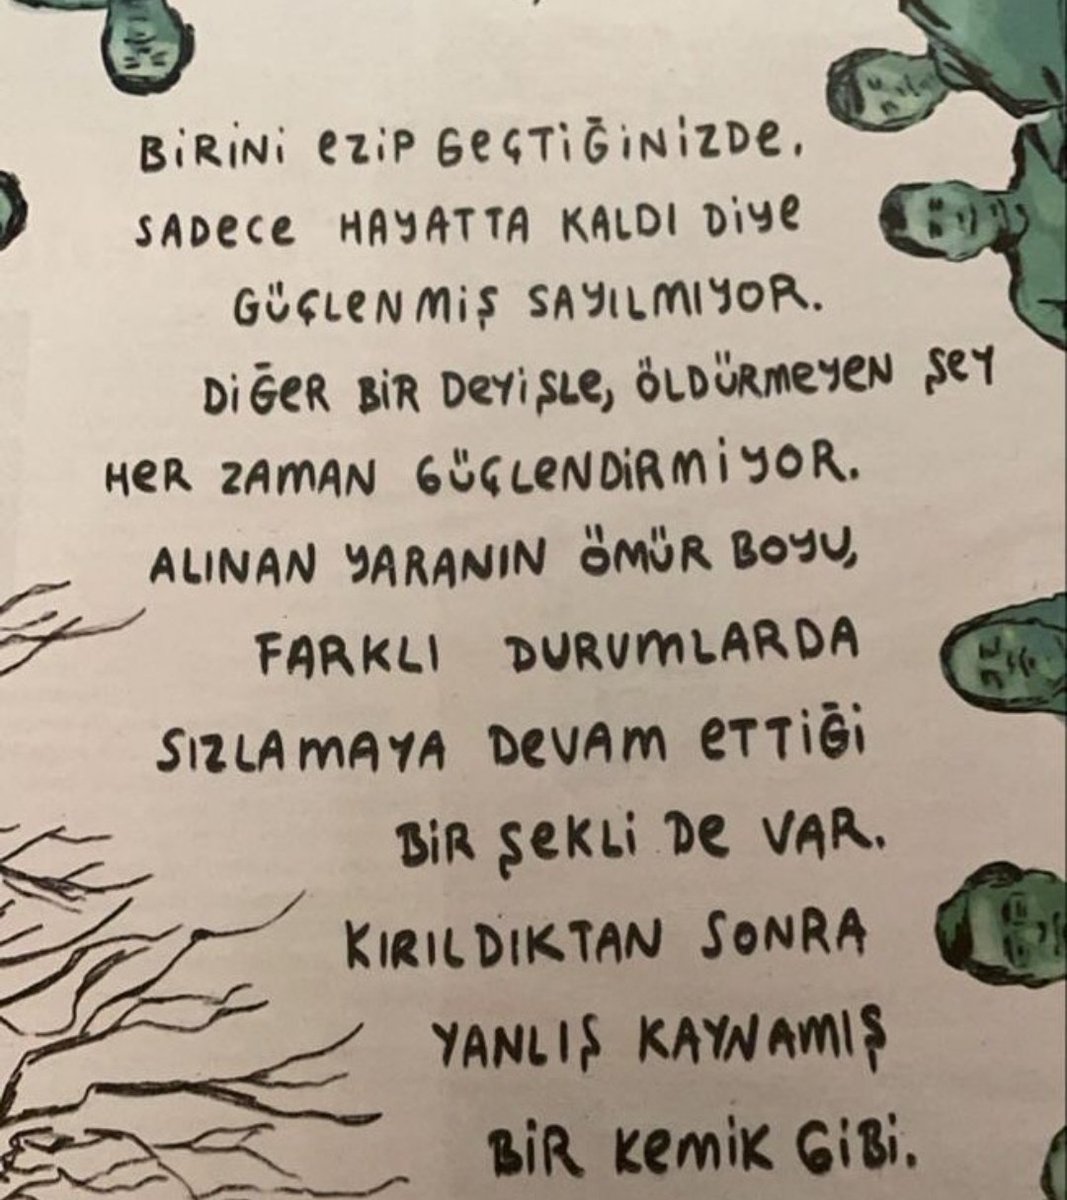 BİRİNİ EZİP GEÇTİĞİNİZDE,
SADECE HAYATTA KALDI DİYE
GÜÇLENMİŞ SAYILMIYOR.
DİĞER BİR DEYİŞLE, ÖLDÜRMEYEN ŞEY
HER ZAMAN GÜÇLENDİRMİYOR.
ALINAN YARANIN ÖMÜR BOYU,
FARKLI DURUMLARDA
SIZLAMAYA DEVAM ETTİĞİ
BİR ŞEKLİ DE VAR.
KIRILDIKTAN SONRA
YANLIŞ KAYNAMIŞ
BİR KEMİK GİBİ.